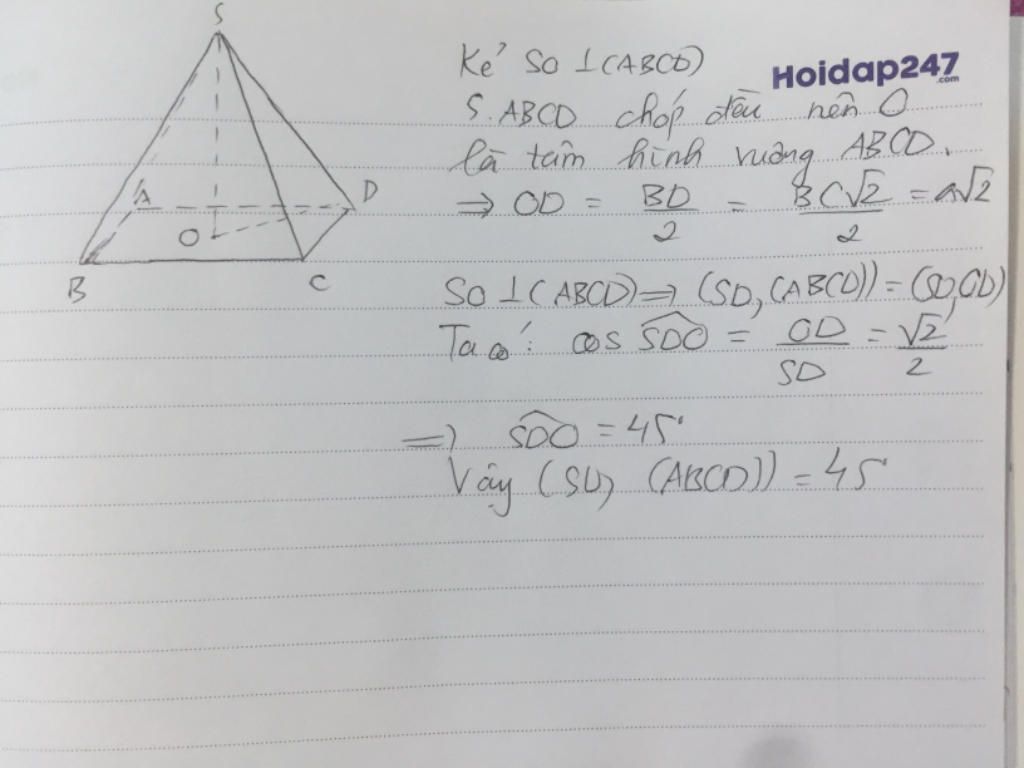 S
A
D
O
B
C
Kẻ SO ⊥ (ABCD)
Hoidap247
.com
S.ABCD chóp đều nên O
là tâm hình vuông ABCD.
⇒ OD = BD/2 = BC√2/2 = a√2
SO ⊥ (ABCD) ⇒ (SD, (ABCD)) = (SD, OD)
Ta có: cos SDO = OD/SD = √2/2
⇒ SDO = 45°
Vậy (SD, (ABCD)) = 45°